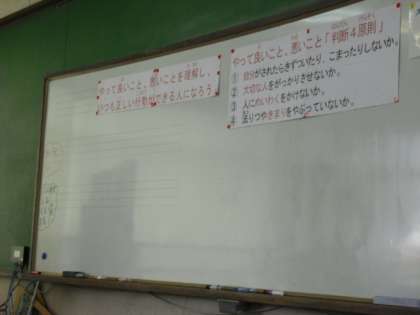 やって良いこと、悪いことを理解し、
いつも正しい行動ができる人になろう
やって良いこと、悪いこと「判断４原則」
① 自分がされたらきずついたり、こまったりしないか。
② 大切な人をがっかりさせないか。
③ 人にめいわくをかけないか。
④ きりつやきまりをやぶっていないか。